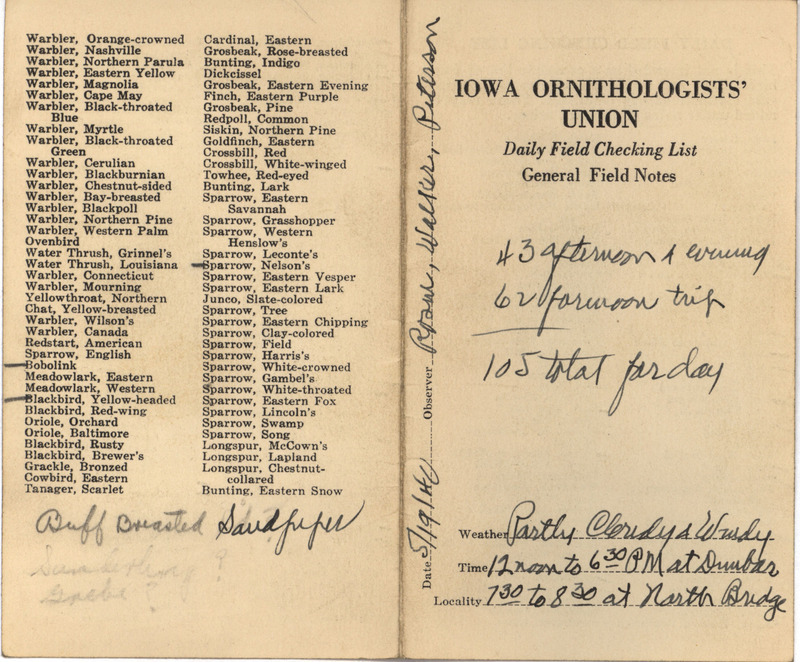 Warbler, Orange-crowned
Warbler, Nashville
Warbler, Northern Parula
Warbler, Eastern Yellow
Warbler, Magnolia
Warbler, Cape May
Warbler, Black-throated
Blue
Warbler, Myrtle
Warbler, Black-throated
Green
Warbler, Cerulian
Warbler, Blackburnian
Warbler, Chestnut-sided
Warbler, Bay-breasted
Warbler, Blackpoll
Warbler, Northern Pine
Warbler, Western Palm
Ovenbird
Water Thrush, Grinnel's
Water Thrush, Louisiana
Warbler, Connecticut
Warbler, Mourning
Yellowthroat, Northern
Chat, Yellow-breasted
Warbler, Wilson's
Warbler, Canada
Redstart, American
Sparrow, English
Bobolink
Meadowlark, Eastern
Meadowlark, Western
Blackbird, Yellow-headed
Blackbird, Red-wing
Oriole, Orchard
Oriole, Baltimore
Blackbird, Rusty
Blackbird, Brewer's
Grackle, Bronzed
Cowbird, Eastern
Tanager, Scarlet
Cardinal, Eastern
Grosbeak, Rose-breasted
Bunting, Indigo
Dickcissel
Grosbeak, Eastern Evening
Finch, Eastern Purple
Grosbeak, Pine
Redpoll, Common
Siskin, Northern Pine
Goldfinch, Eastern
Crossbill, Red
Crossbill, White-winged
Towhee, Red-eyed
Bunting, Lark
Sparrow, Eastern
Savannah
Sparrow, Grasshopper
Sparrow, Western
Henslow's
Sparrow, Leconte's
Sparrow, Nelson's
Sparrow, Eastern Vesper
Sparrow, Eastern Lark
Junco, Slate-colored
Sparrow, Tree
Sparrow, Eastern Chipping
Sparrow, Clay-colored
Sparrow, Field
Sparrow, Harris's
Sparrow, White-crowned
Sparrow, Gambel's
Sparrow, White-throated
Sparrow, Eastern Fox
Sparrow, Lincoln's
Sparrow, Swamp
Sparrow, Song
Longspur, McCown's
Longspur, Lapland
Longspur, Chestnut-
collared
Bunting, Eastern Snow
Buff Breasted Sandpiper
Sanderling ?
Grebe ?
Date 5/19/40 Observer Rosene, Walker, Peterson
IOWA ORNITHOLOGISTS'
UNION
Daily Field Checking List
General Field Notes
43 afternoon & evening
62 forenoon trip
105 total for day
Weather Partly Cloudy & Windy
Time 12 noon to 6 30 PM at Dunbar
Locality 7 30 to 8 30 at North Bridge